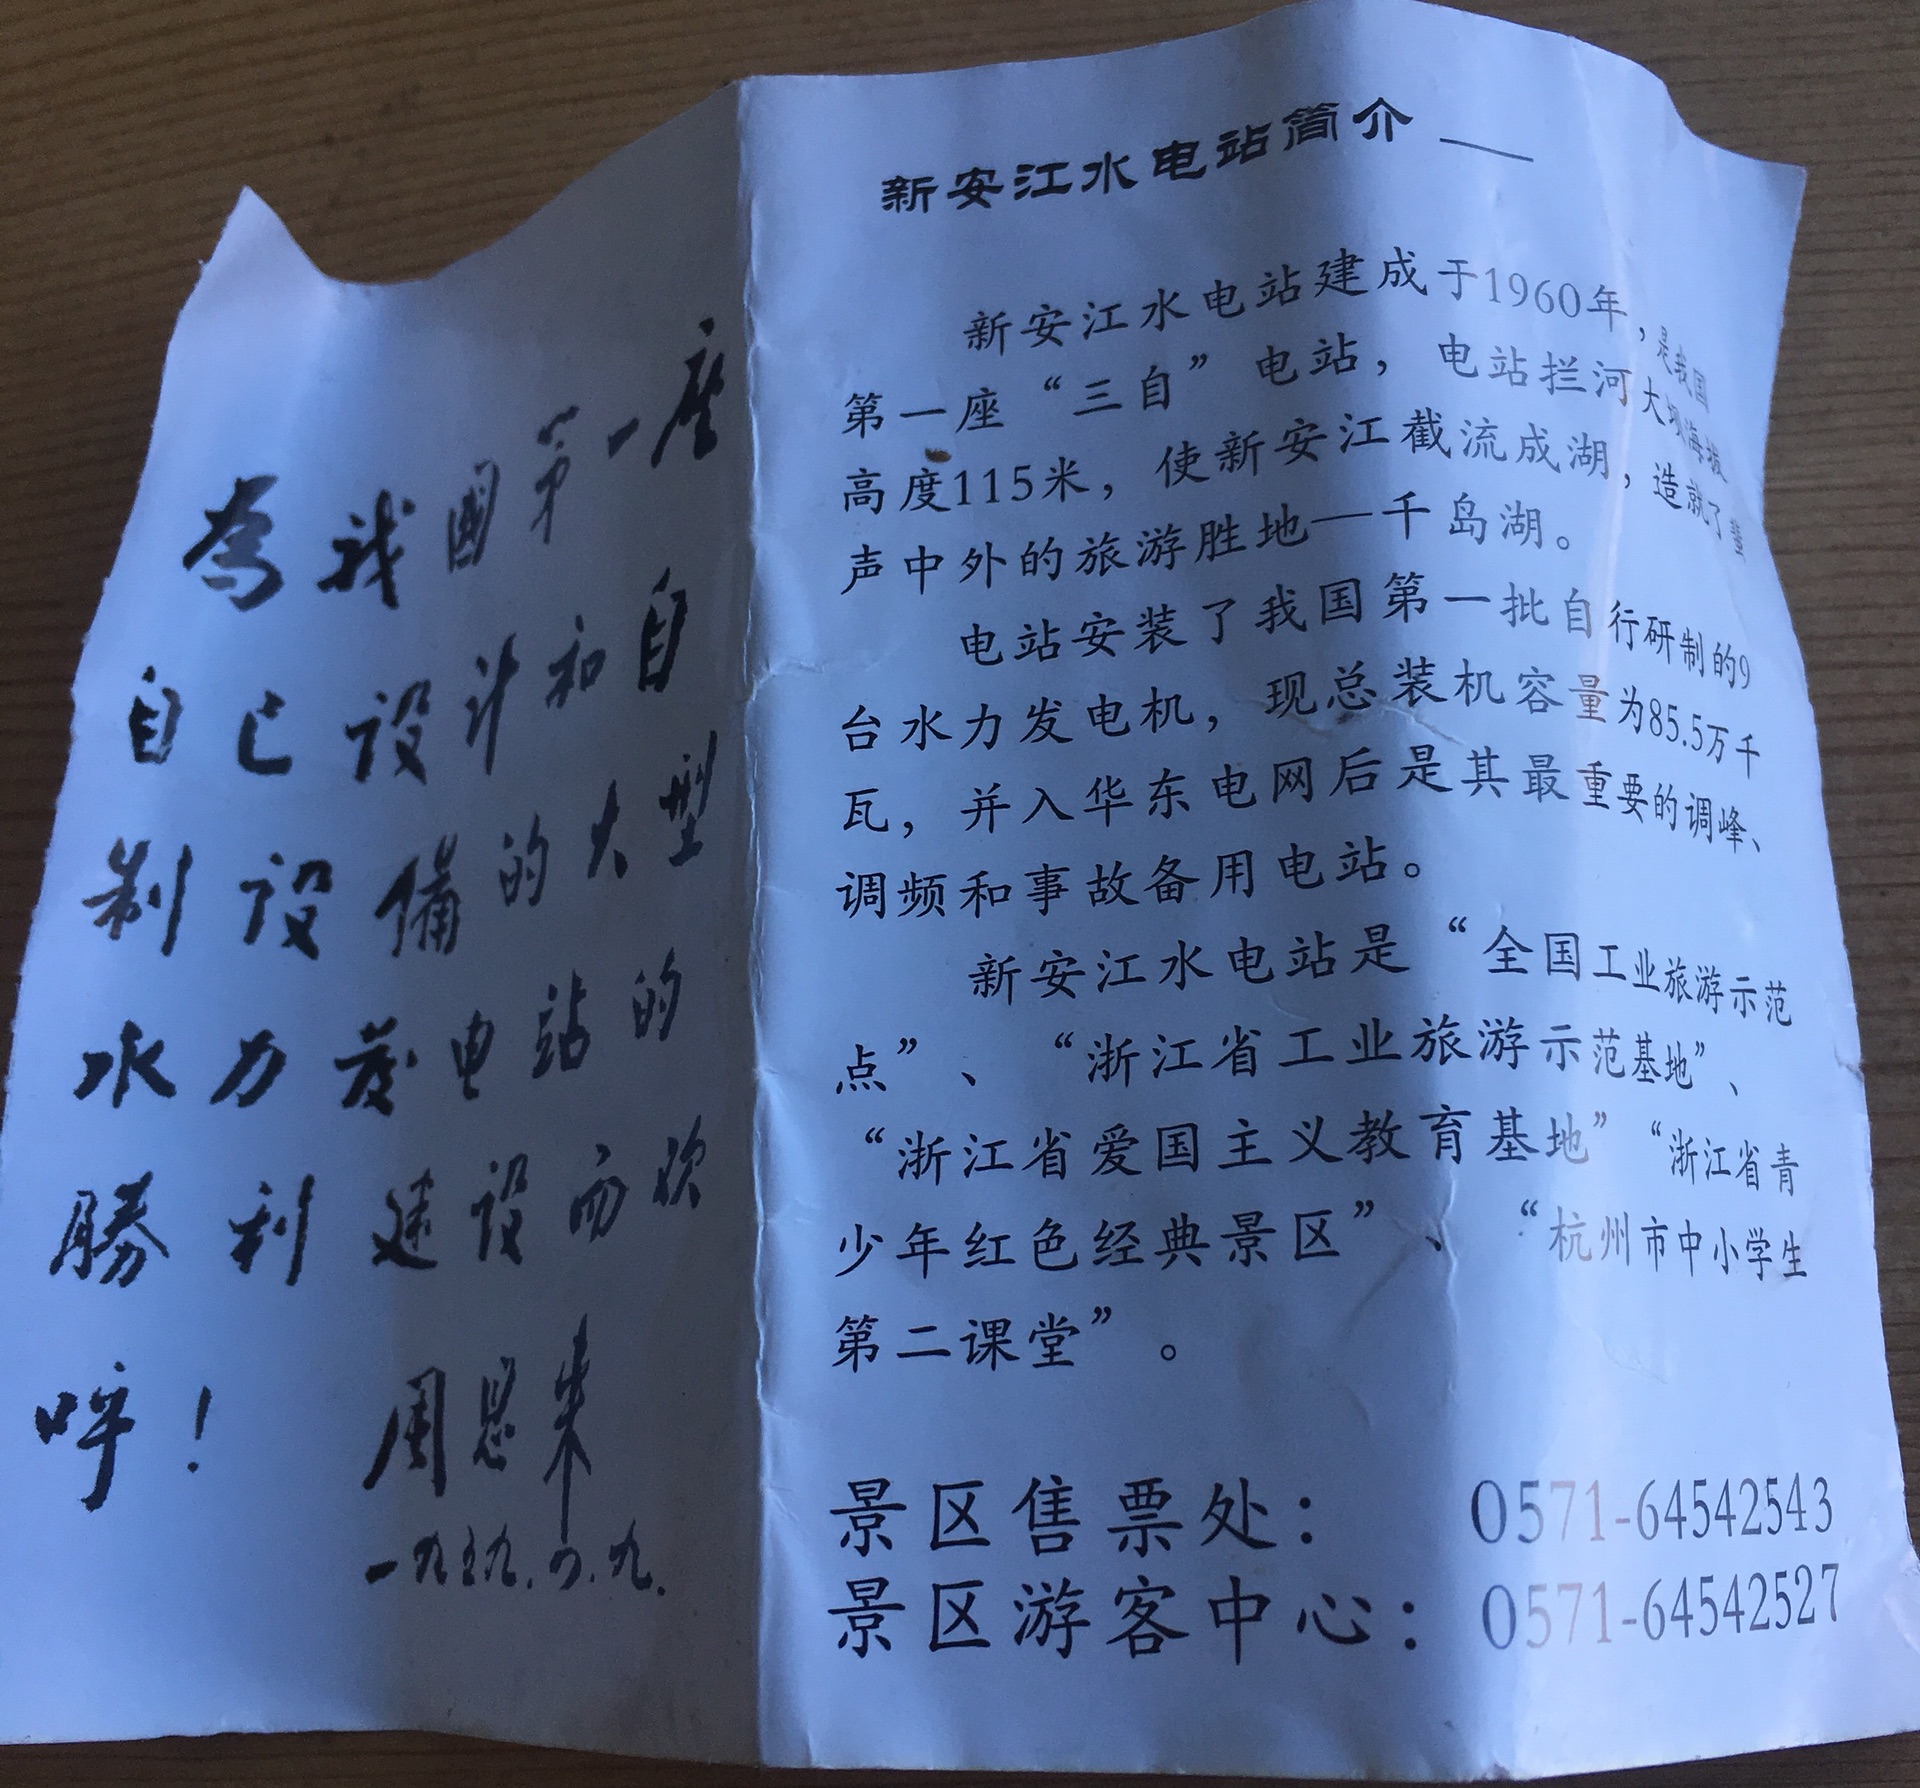 為我國第一座
自己设计和自
制设備的大型
水力发电站的
勝利建设而欢
呼！
周恩来
一九五九.四.九.
新安江水电站简介
新安江水电站建成于1960年，是我国
第一座“三自”电站，电站拦河大坝海拔
高度115米，使新安江截流成湖，造就了蜚
声中外的旅游胜地—千岛湖。
电站安装了我国第一批自行研制的9
台水力发电机，现总装机容量为85.5万千
瓦，并入华东电网后是其最重要的调峰、
调频和事故备用电站。
新安江水电站是“全国工业旅游示范
点”、“浙江省工业旅游示范基地”、
“浙江省爱国主义教育基地”“浙江省青
少年红色经典景区”、“杭州市中小学生
第二课堂”。
景区售票处：0571-64542543
景区游客中心：0571-64542527